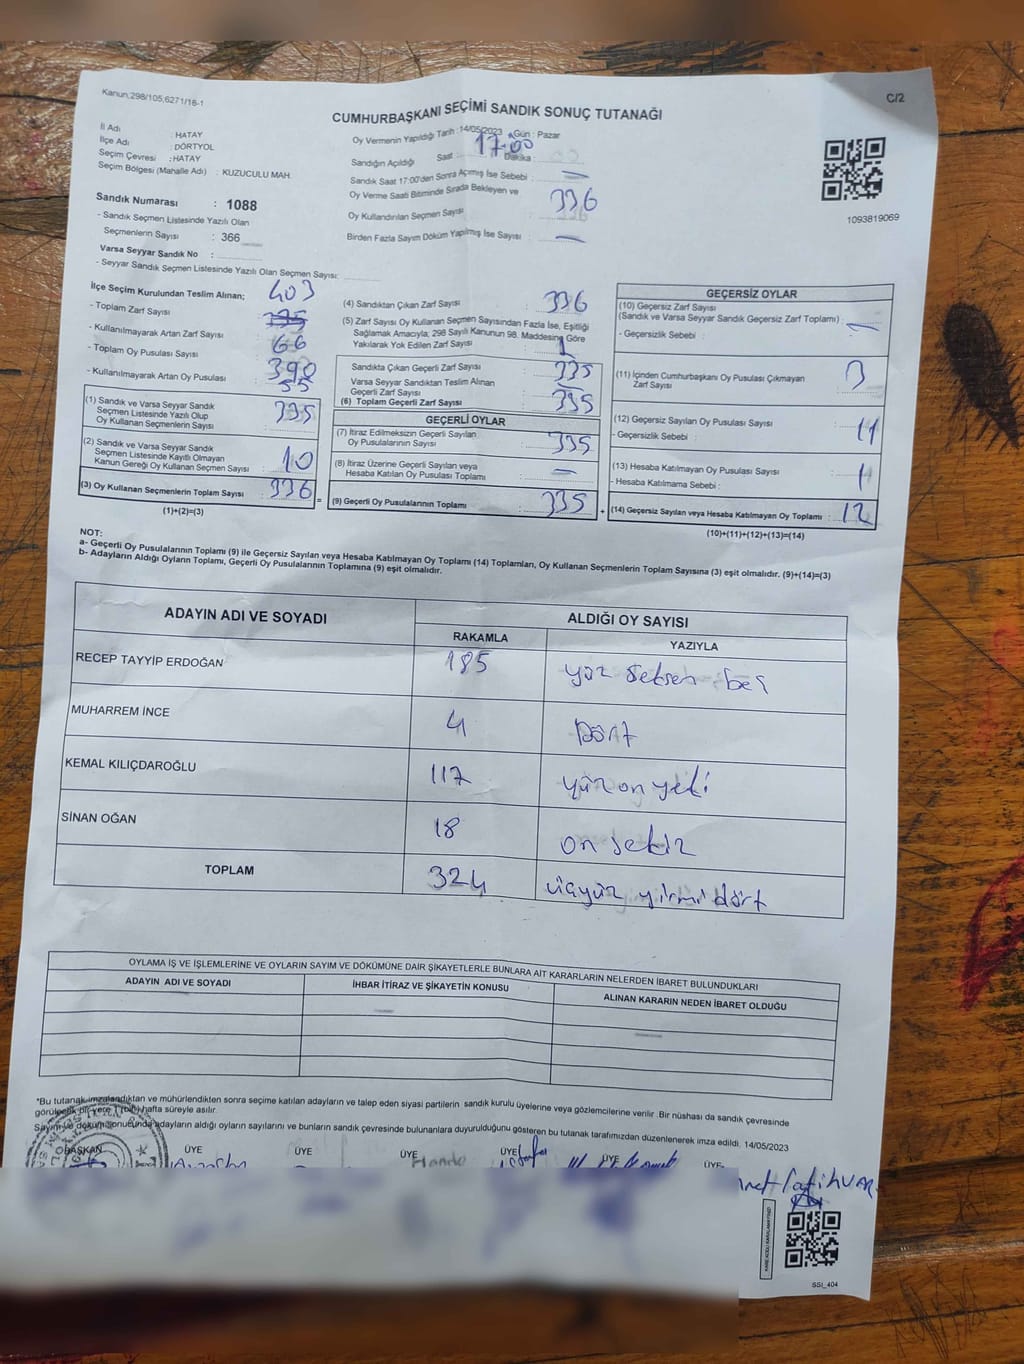 Kanun;298/105,6271/16-1
C/2
CUMHURBAŞKANI SEÇİMİ SANDIK SONUÇ TUTANAĞI
İl Adı : HATAY
İlçe Adı : DÖRTYOL
Seçim Çevresi : HATAY
Seçim Bölgesi (Mahalle Adı) : KUZUCULU MAH.
Sandık Numarası : 1088
- Sandık Seçmen Listesinde Yazılı Olan
Seçmenlerin Sayısı : 366
Varsa Seyyar Sandık No :
- Seyyar Sandık Seçmen Listesinde Yazılı Olan Seçmen Sayısı:
Oy Vermenin Yapıldığı Tarih : 14/05/2023 Gün : Pazar
Sandığın Açıldığı Saat : 17.00 Dakika :
Sandık Saat 17:00'den Sonra Açımış İse Sebebi : —
Oy Verme Saati Bitiminde Sırada Bekleyen ve
Oy Kullandırılan Seçmen Sayısı : 336
Birden Fazla Sayım Döküm Yapılmış İse Sayısı : —
1093819069
İlçe Seçim Kurulundan Teslim Alınan; 403
- Toplam Zarf Sayısı
- Kullanılmayarak Artan Zarf Sayısı : 66
- Toplam Oy Pusulası Sayısı : 390
- Kullanılmayarak Artan Oy Pusulası : 55
(1) Sandık ve Varsa Seyyar Sandık
Seçmen Listesinde Yazılı Olup
Oy Kullanan Seçmenlerin Sayısı : 335
(2) Sandık ve Varsa Seyyar Sandık
Seçmen Listesinde Kayıtlı Olmayan
Kanun Gereği Oy Kullanan Seçmen Sayısı : 10
(3) Oy Kullanan Seçmenlerin Toplam Sayısı : 336
(1)+(2)=(3)
(4) Sandıktan Çıkan Zarf Sayısı : 336
(5) Zarf Sayısı Oy Kullanan Seçmen Sayısından Fazla İse, Eşitliği
Sağlamak Amacıyla; 298 Sayılı Kanunun 98. Maddesine Göre
Yakılarak Yok Edilen Zarf Sayısı : 1
Sandıkta Çıkan Geçerli Zarf Sayısı : 335
Varsa Seyyar Sandıktan Teslim Alınan
Geçerli Zarf Sayısı
(6) Toplam Geçerli Zarf Sayısı : 335
GEÇERLİ OYLAR
(7) İtiraz Edilmeksizin Geçerli Sayılan
Oy Pusulalarının Sayısı : 335
(8) İtiraz Üzerine Geçerli Sayılan veya
Hesaba Katılan Oy Pusulası Toplamı : —
(9) Geçerli Oy Pusulalarının Toplamı : 335
GEÇERSİZ OYLAR
(10) Geçersiz Zarf Sayısı
(Sandık ve Varsa Seyyar Sandık Geçersiz Zarf Toplamı) : —
- Geçersizlik Sebebi :
(11) İçinden Cumhurbaşkanı Oy Pusulası Çıkmayan
Zarf Sayısı : 3
(12) Geçersiz Sayılan Oy Pusulası Sayısı : 11
- Geçersizlik Sebebi :
(13) Hesaba Katılmayan Oy Pusulası Sayısı : 1
- Hesaba Katılmama Sebebi :
(14) Geçersiz Sayılan veya Hesaba Katılmayan Oy Toplamı : 12
(10)+(11)+(12)+(13)=(14)
NOT:
a- Geçerli Oy Pusulalarının Toplamı (9) ile Geçersiz Sayılan veya Hesaba Katılmayan Oy Toplamı (14) Toplamları, Oy Kullanan Seçmenlerin Toplam Sayısına (3) eşit olmalıdır. (9)+(14)=(3)
b- Adayların Aldığı Oyların Toplamı, Geçerli Oy Pusulalarının Toplamına (9) eşit olmalıdır.
ADAYIN ADI VE SOYADI ALDIĞI OY SAYISI
RAKAMLA YAZIYLA
RECEP TAYYİP ERDOĞAN 185 yüz seksen beş
MUHARREM İNCE 4 Dört
KEMAL KILIÇDAROĞLU 117 yüz on yedi
SİNAN OĞAN 18 on sekiz
TOPLAM 324 üçyüz yirmi dört
OYLAMA İŞ VE İŞLEMLERİNE VE OYLARIN SAYIM VE DÖKÜMÜNE DAİR ŞİKAYETLERLE BUNLARA AİT KARARLARIN NELERDEN İBARET BULUNDUKLARI
ADAYIN ADI VE SOYADI İHBAR İTİRAZ VE ŞİKAYETİN KONUSU ALINAN KARARIN NEDEN İBARET OLDUĞU
*Bu tutanak imzalandıktan ve mühürlendikten sonra seçime katılan adayların ve talep eden siyasi partilerin sandık kurulu üyelerine veya gözlemcilerine verilir. Bir nüshası da sandık çevresinde
görülecek bir yere 1 (bir) hafta süreyle asılır.
Sayım ve döküm sonucunda adayların aldığı oyların sayılarını ve bunların sandık çevresinde bulunanlara duyurulduğunu gösteren bu tutanak tarafımızdan düzenlenerek imza edildi. 14/05/2023
BAŞKAN ÜYE ÜYE ÜYE ÜYE ÜYE ÜYE
SSI_404